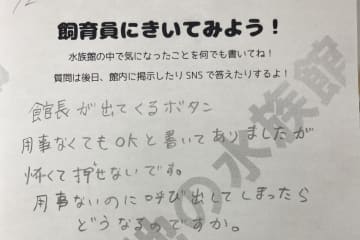 飼育員にきいてみよう！
水族館の中で気になったことを何でも書いてね！
質問は後日、館内に掲示したりSNSで答えたりするよ！
館長が出てくるボタン
用事なくてもOKと書いてありましたが
怖くて押せないです。
用事ないのに呼び出してしまったら
どうなるのですか。
の水族館